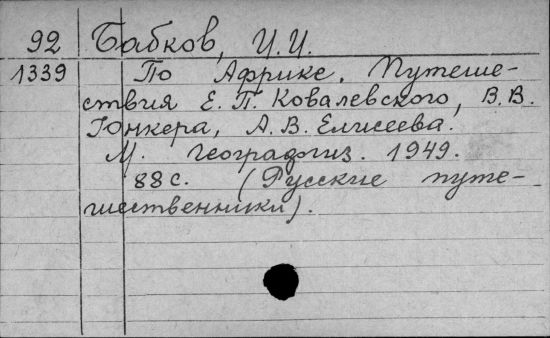 92 Бабков, И.И.
1339 По Африке. Путеше-
ствия Е.П. Ковалевского, В.В.
Юнкера, А.В. Елисеева.
М. Географгиз. 1949.
88 с. (Русские путе-
шественники).